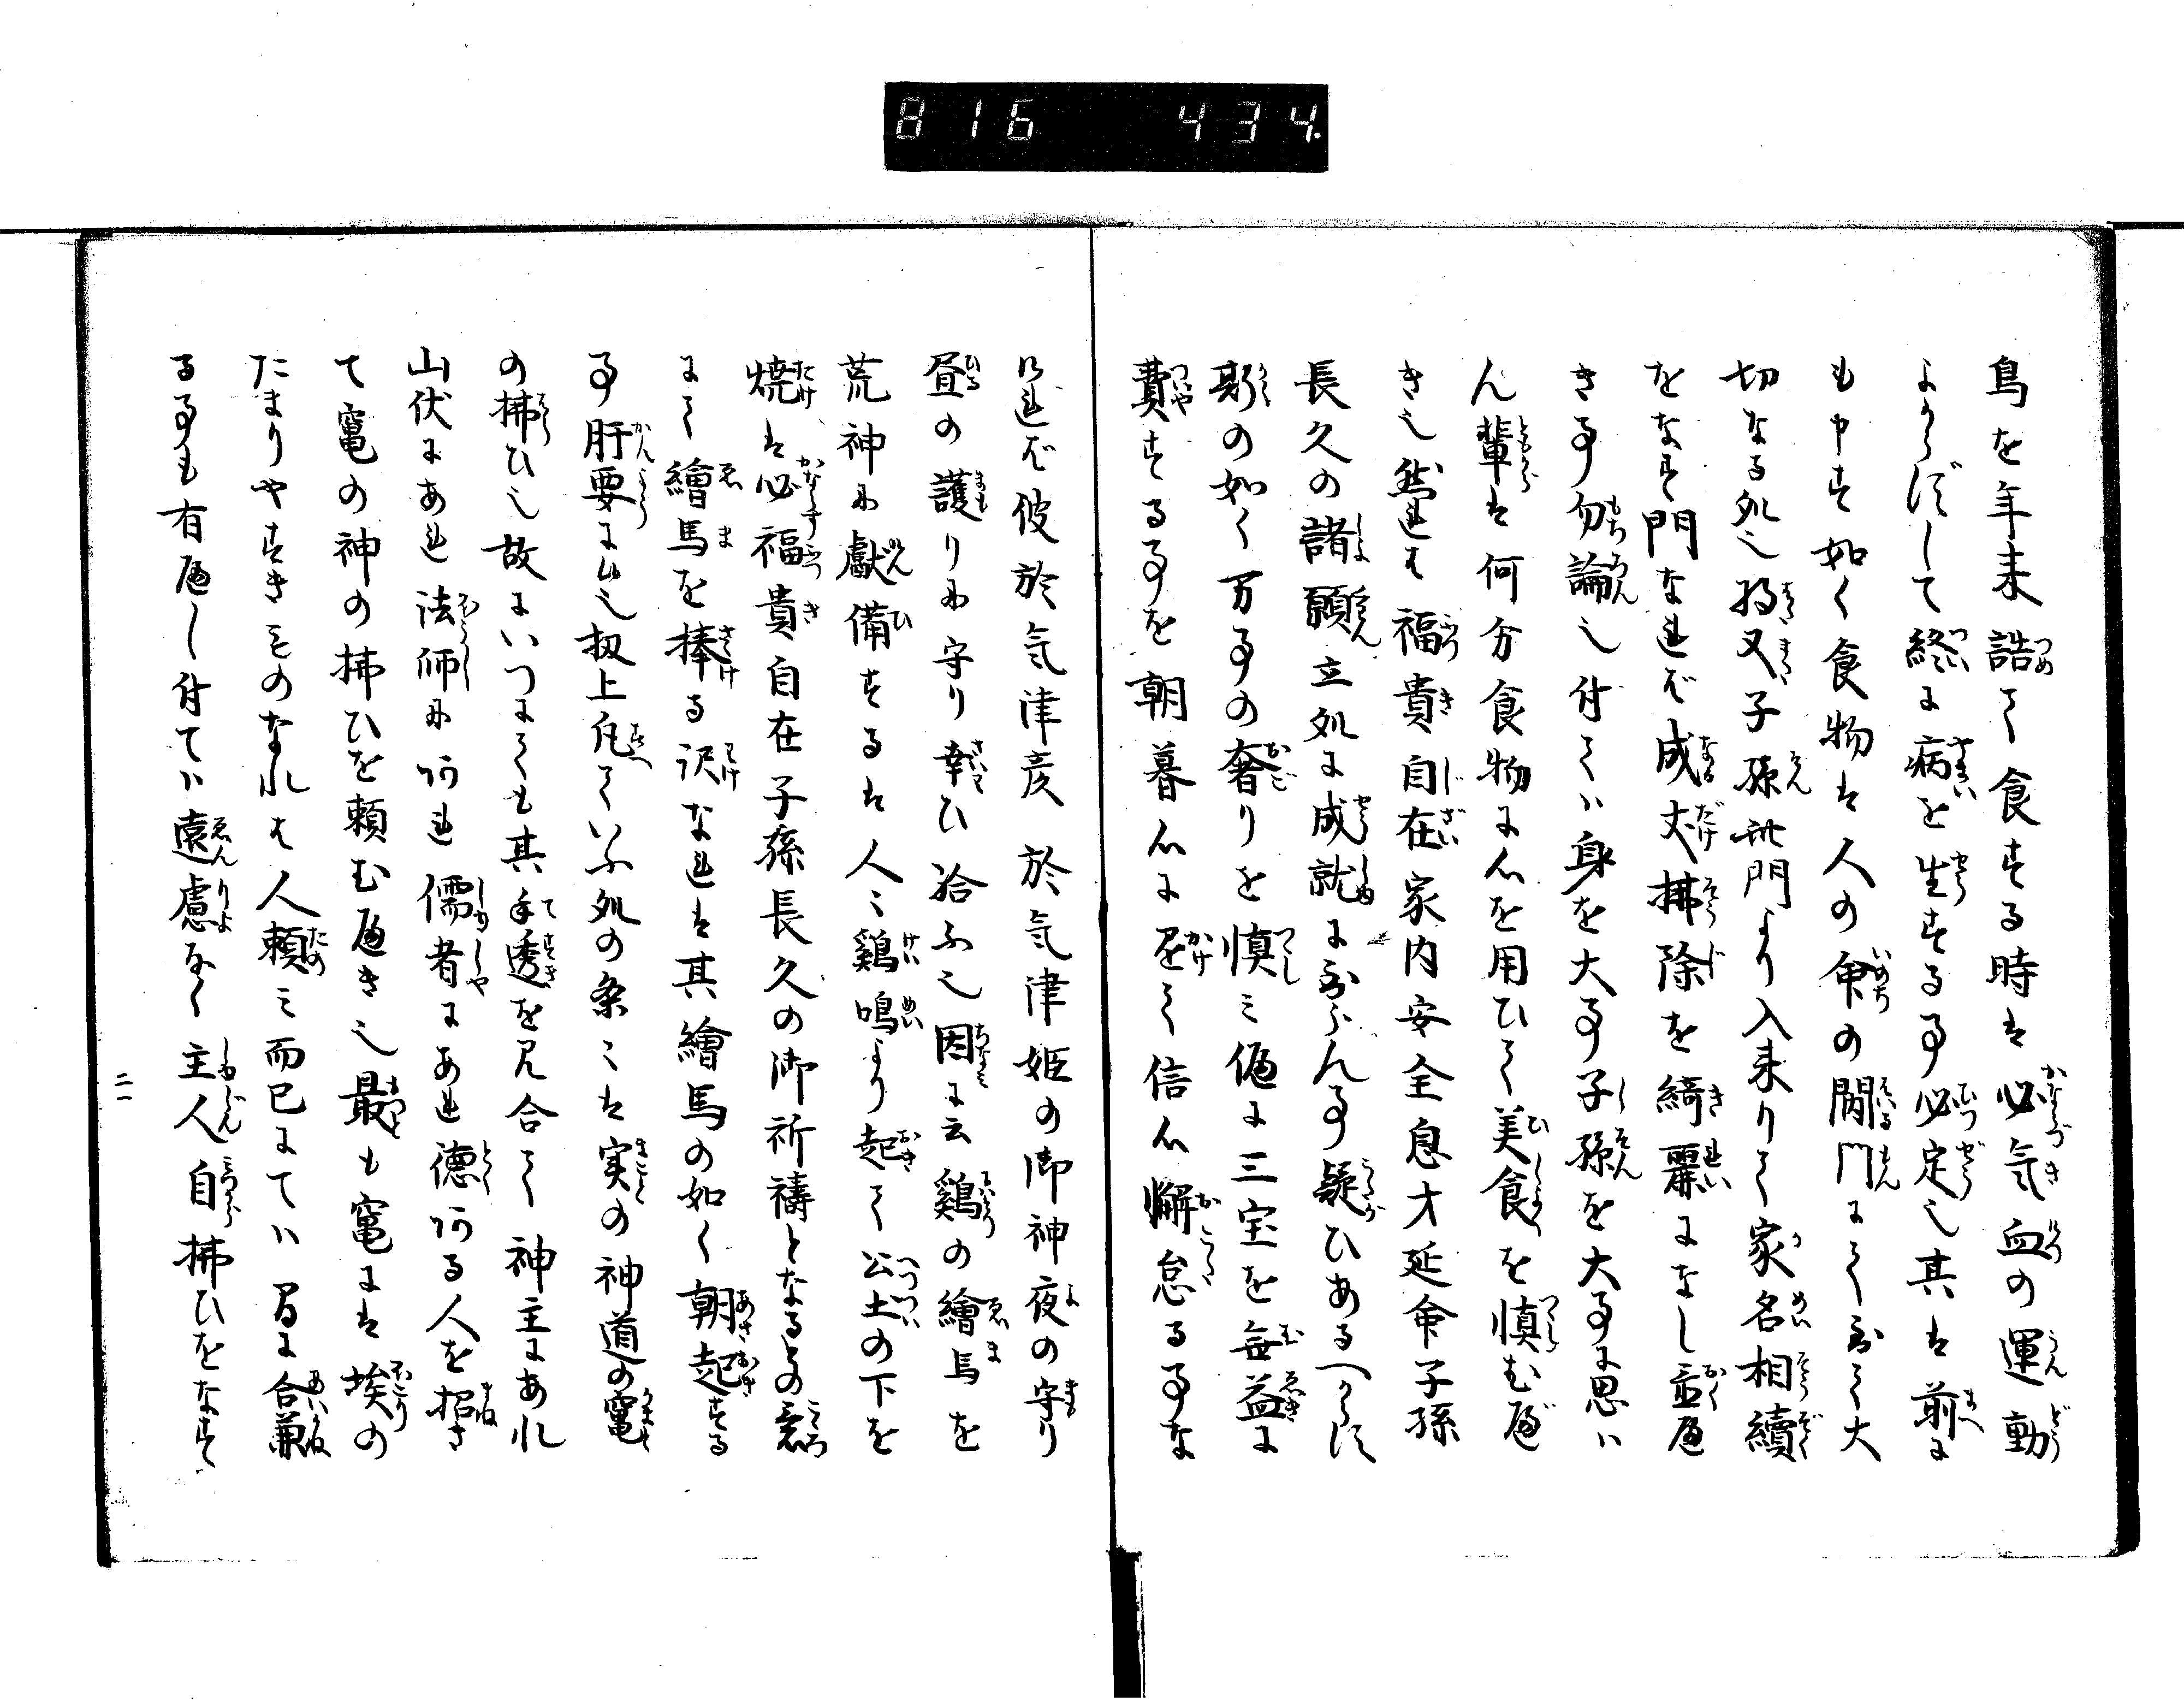 816 434.
鳥を年来詰て食する時は必気血の運動
よからずして終に病を生する事必定也其は前に
も申す如く食物は人の命の関門にて至て大
切なる処也将又子孫此門より入来りて家名相続
をなす門なれば成丈掃除を綺麗になし置べ
き事勿論也付ては身を大事子孫を大事に思は
ん輩は何分食物に心を用ひて美食を慎むべ
き也然れは福貴自在家内安全息才延命子孫
長久の諸願立処に成就に至らん事疑ひあるへからす
斯の如く万事の奢りを慎み偏に三宝を無益に
費する事を朝暮心に懸て信心懈怠る事な
ければ彼於気津彦於気津姫の御神夜の守り
昼の護りに守り幸ひ給ふ也因に云鶏の絵馬を
荒神に献備するは人々鶏鳴より起て公土の下を
焼は必福貴自在子孫長久の御祈祷となるとの意
にて繪馬を捧る訳なれは其繪馬の如く朝起する
事肝要に候也扨上凡ていふ処の条々は実の神道の竃
の拂ひ也故にいつにても其手透を見合て神主にあれ
山伏にあれ法師に何れ儒者にあれ徳何る人を招き
て竃の神の拂ひを頼むべき也最も竃には埃の
たまりやすきものなれは人頼み而已にては間に合兼
る事も有べし付ては遠慮なく主人自拂ひをなす
二一